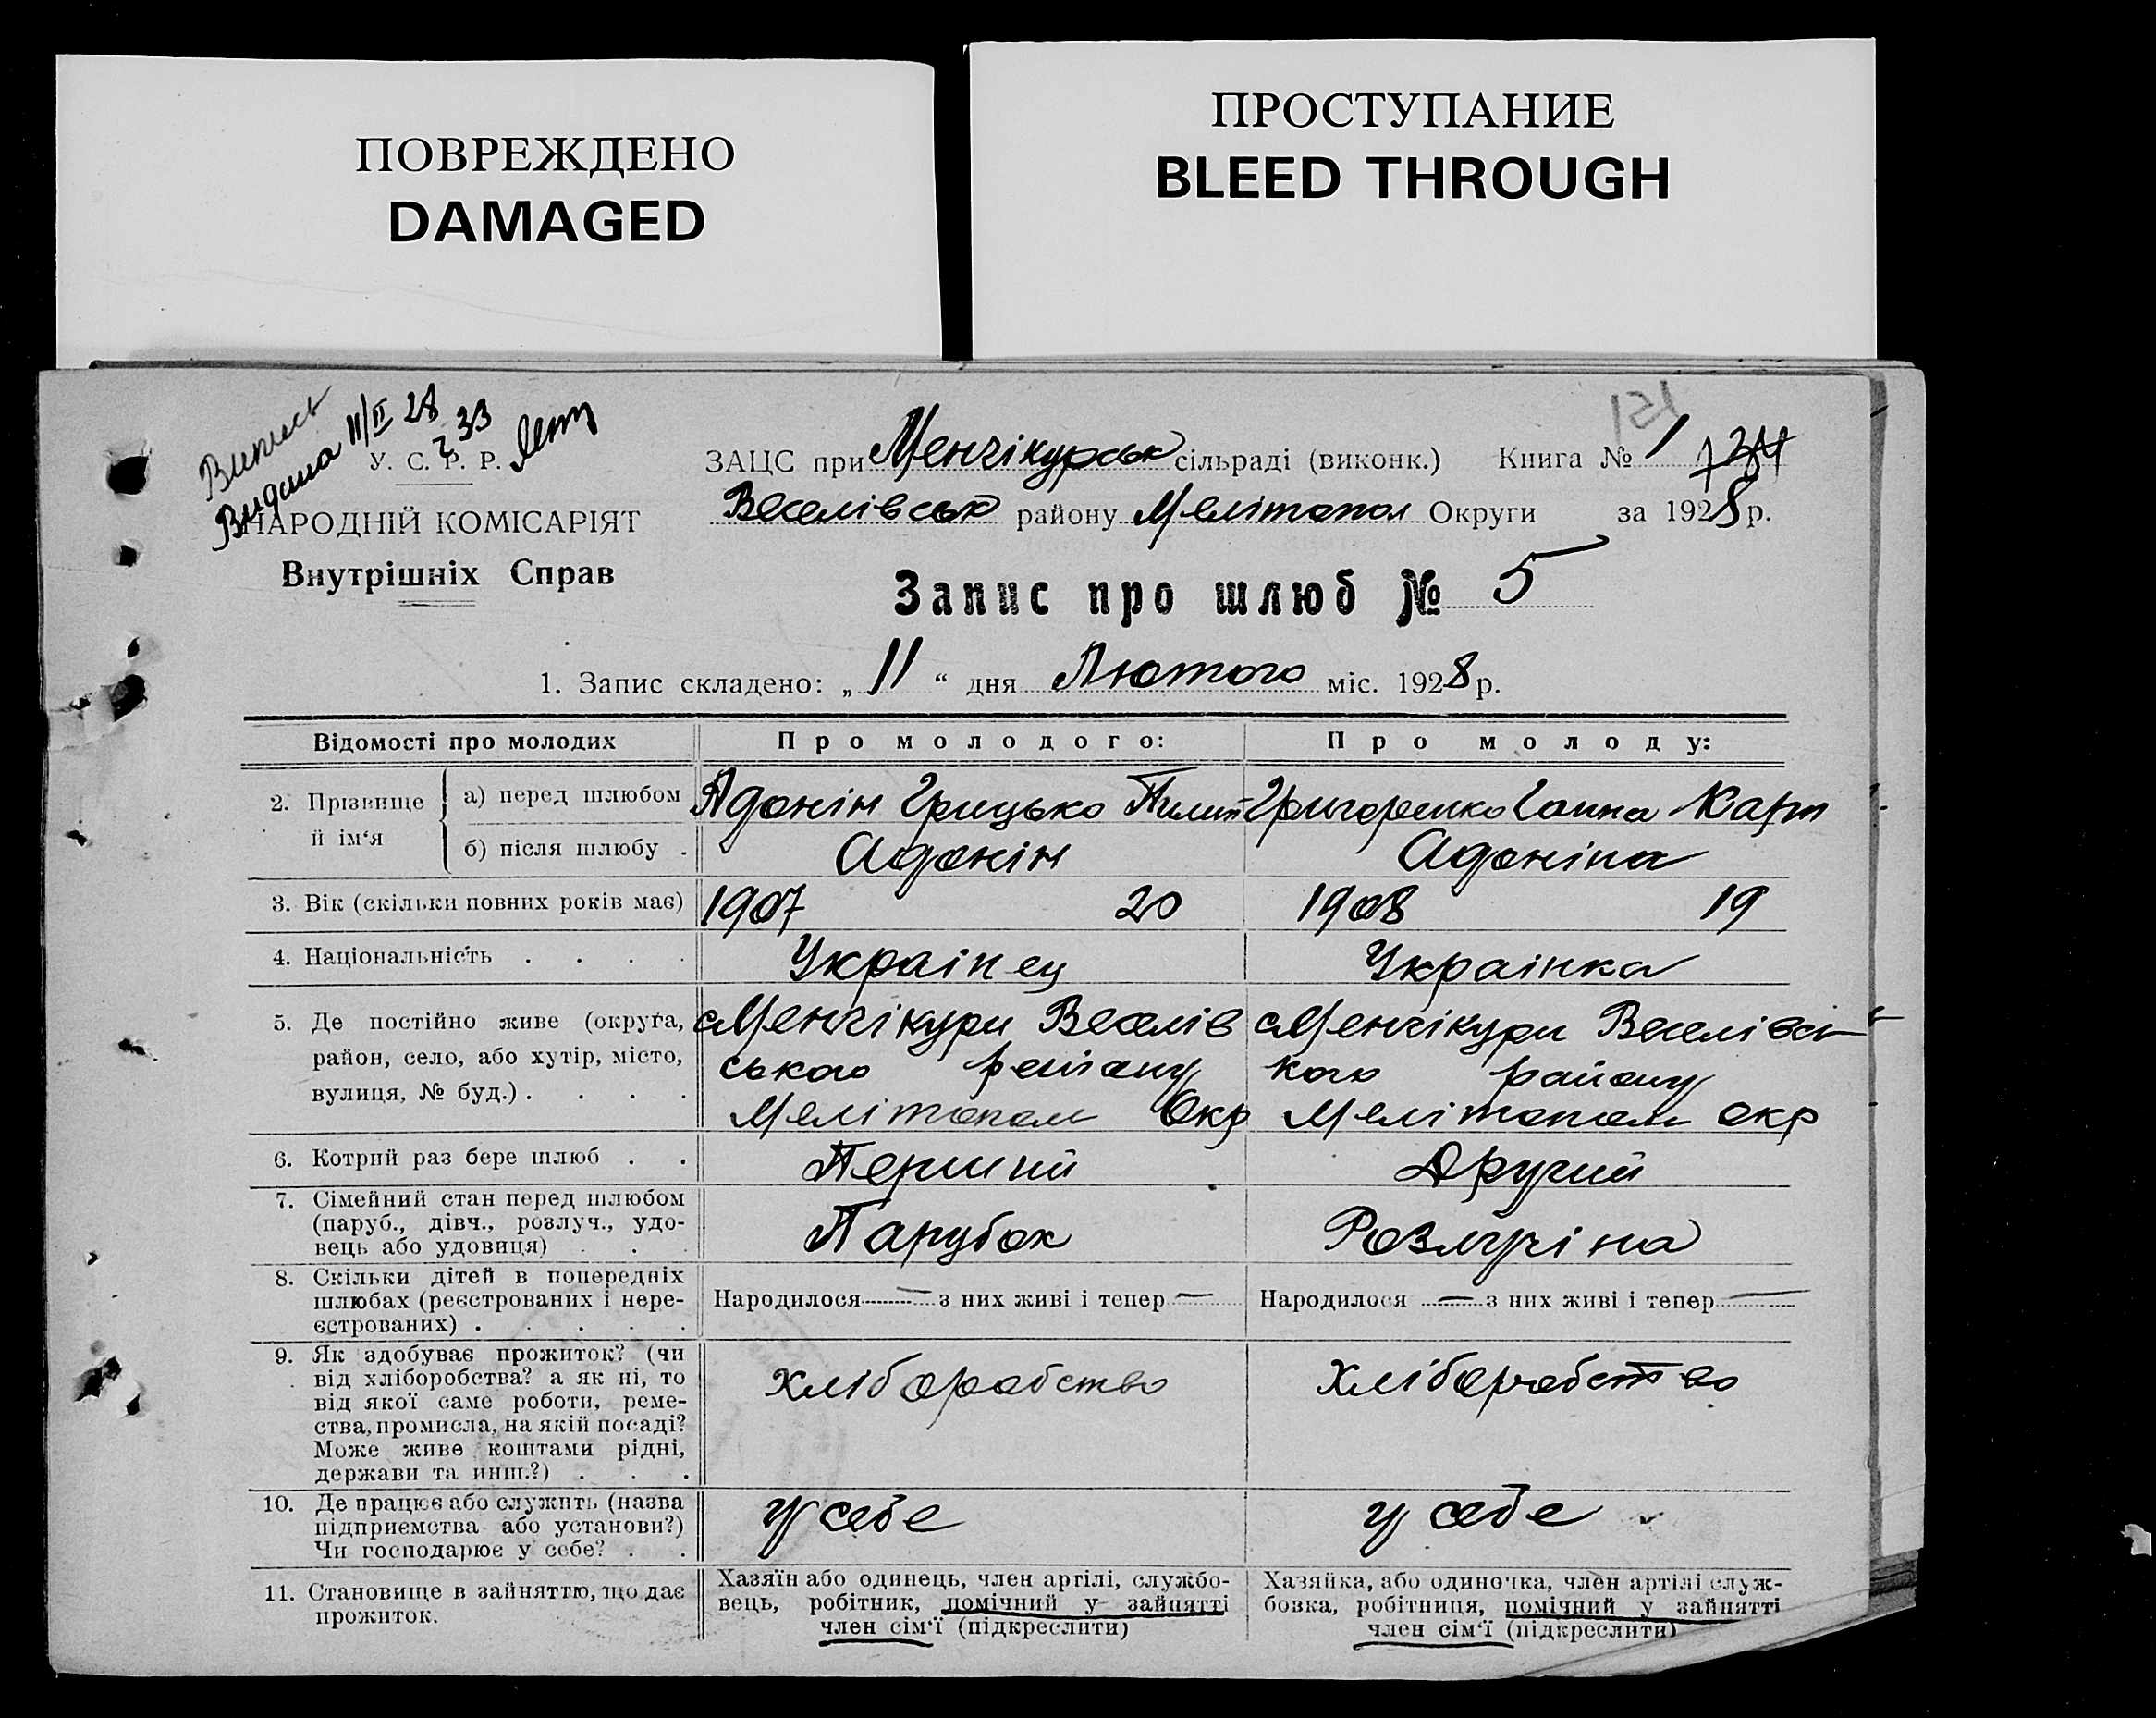 ПОВРЕЖДЕНО
DAMAGED
ПРОСТУПАНИЕ
BLEED THROUGH
Випись
Видана 11/II 28
У. С. Р. Р.
НАРОДНІЙ КОМІСАРІЯТ
Внутрішніх Справ
ЗАЦС при Менчікурськ сільраді (виконк.) Книга № 1
Веселівськ району Мелітопол Округи за 1928 р.
Запис про шлюб № 5
1. Запис складено: „ 11 “ дня Лютого міс. 1928 р.
Відомості про молодих Про молодого: Про молоду:
2. Прізвище й ім‘я
а) перед шлюбом Адонін Грицько Пилип Григоренко Ганна Карп
б) після шлюбу . Адонін Адоніна
3. Вік (скільки повних років має) 1907 20 1908 19
4. Національність . . . . Украінец Украінка
5. Де постійно живе (округа, район, село, або хутір, місто, вулиця, № буд.) . . . .
с Менчікури Веселів
ського району
Мелітопол Окр
с Менчікури Веселівсь
кого району
Мелітопол окр
6. Котрий раз бере шлюб . . Перший Другий
7. Сімейний стан перед шлюбом
(паруб., дівч., розлуч., удо-
вець або удовиця) . . . Парубок Розлучіна
8. Скільки дітей в попередніх
шлюбах (реєстрованих і нере-
єстрованих) . . . . . .
Народилося — з них живі і тепер —
Народилося — з них живі і тепер —
9. Як здобуває прожиток? (чи
від хліборобства? а як ні, то
від якої саме роботи, реме-
ства, промисла, на якій посаді?
Може живе коштами рідні,
держави та инш.?) . . .
хліборобство
хліборобство
10. Де працює або служить (назва
підприємства або установи?)
Чи господарює у себе? . .
у себе
у себе
11. Становище в зайняттю, що дає
прожиток.
Хазяїн або одинець, член аргілі, службо-
вець, робітник, помічний у зайнятті
член сім‘ї (підкреслити)
Хазяйка, або одиночка, член артілі служ-
бовка, робітниця, помічний у зайнятті
член сім‘ї (підкреслити)